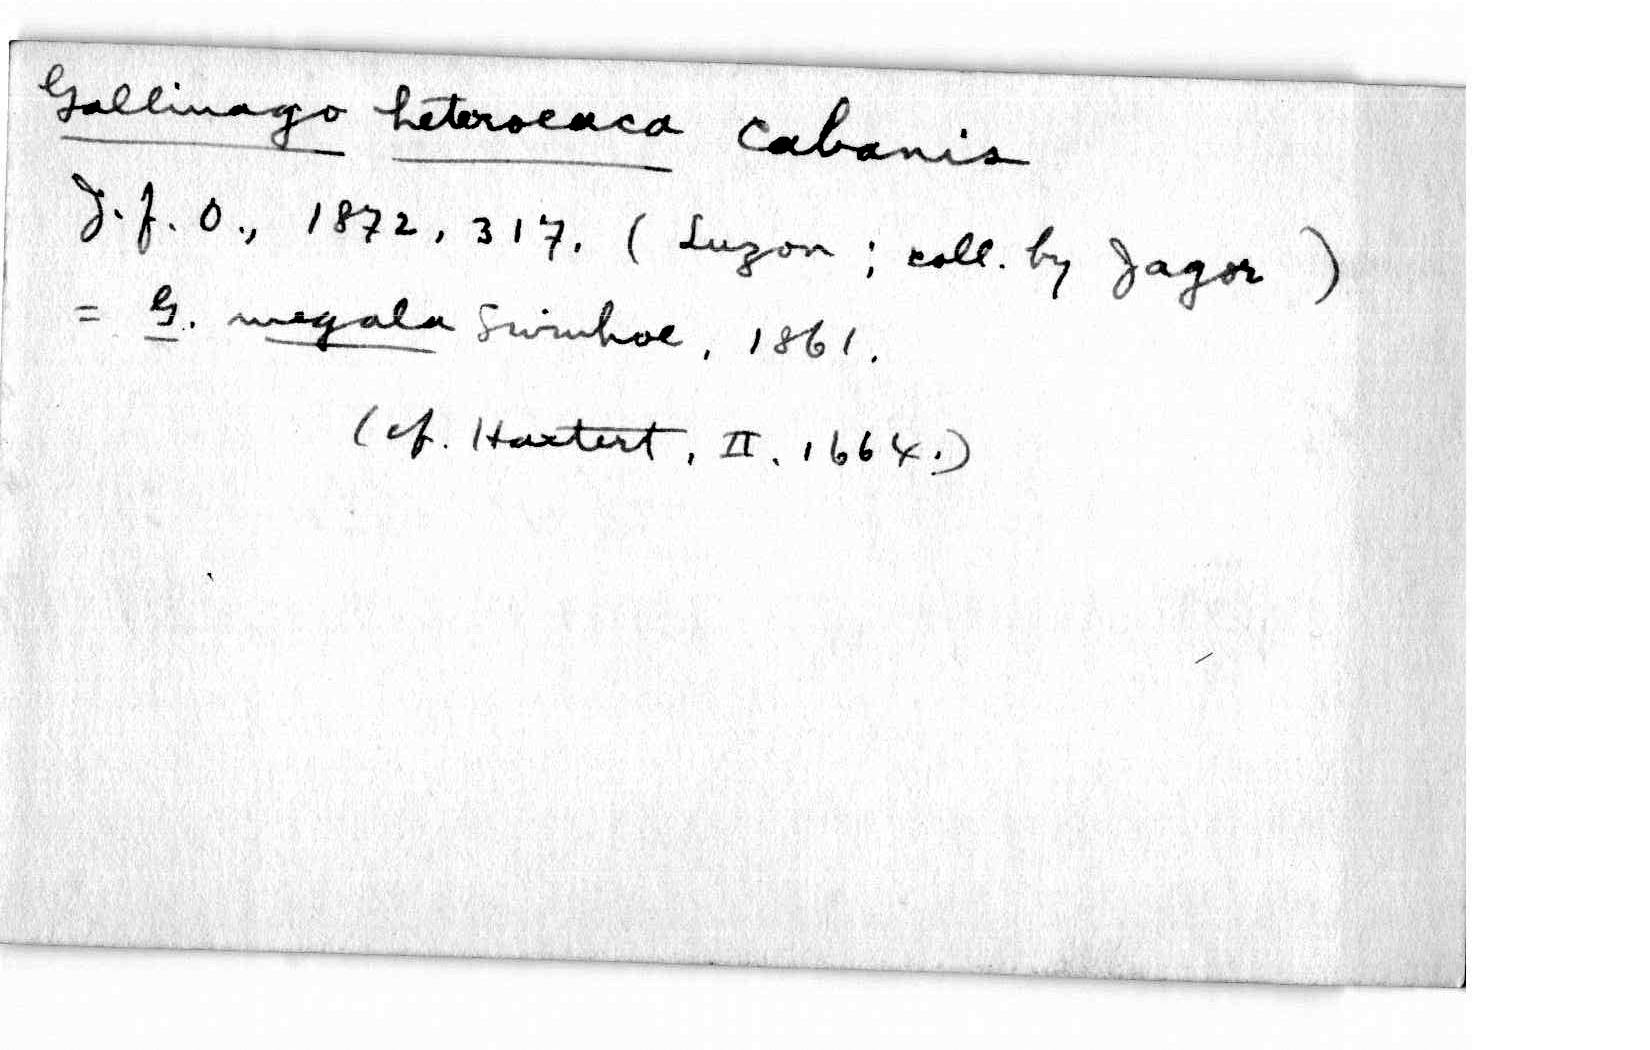 Gallinago heterocaca Cabanis
J. f. O., 1872, 317. (Luzon; coll. by Jagor)
= G. megala Swinhoe, 1861.
(cf. Hartert, II, 1664.)